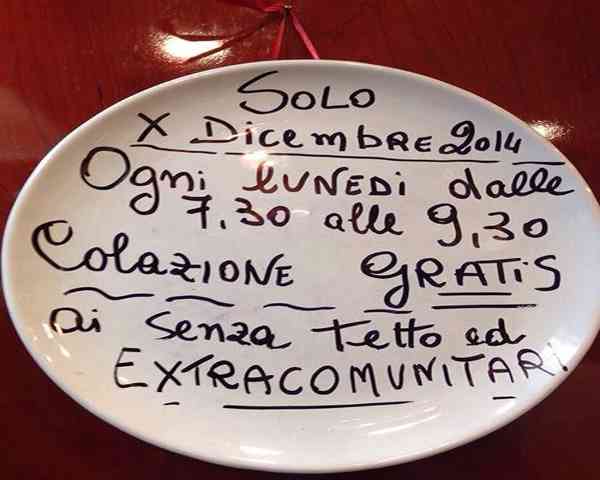 SOLO
X DicembRE 2014
Ogni lUNEDi dalle
7,30 alle 9,30
ColazIONE gRATiS
ai senza Tetto ed
EXTRACOMUNITARI